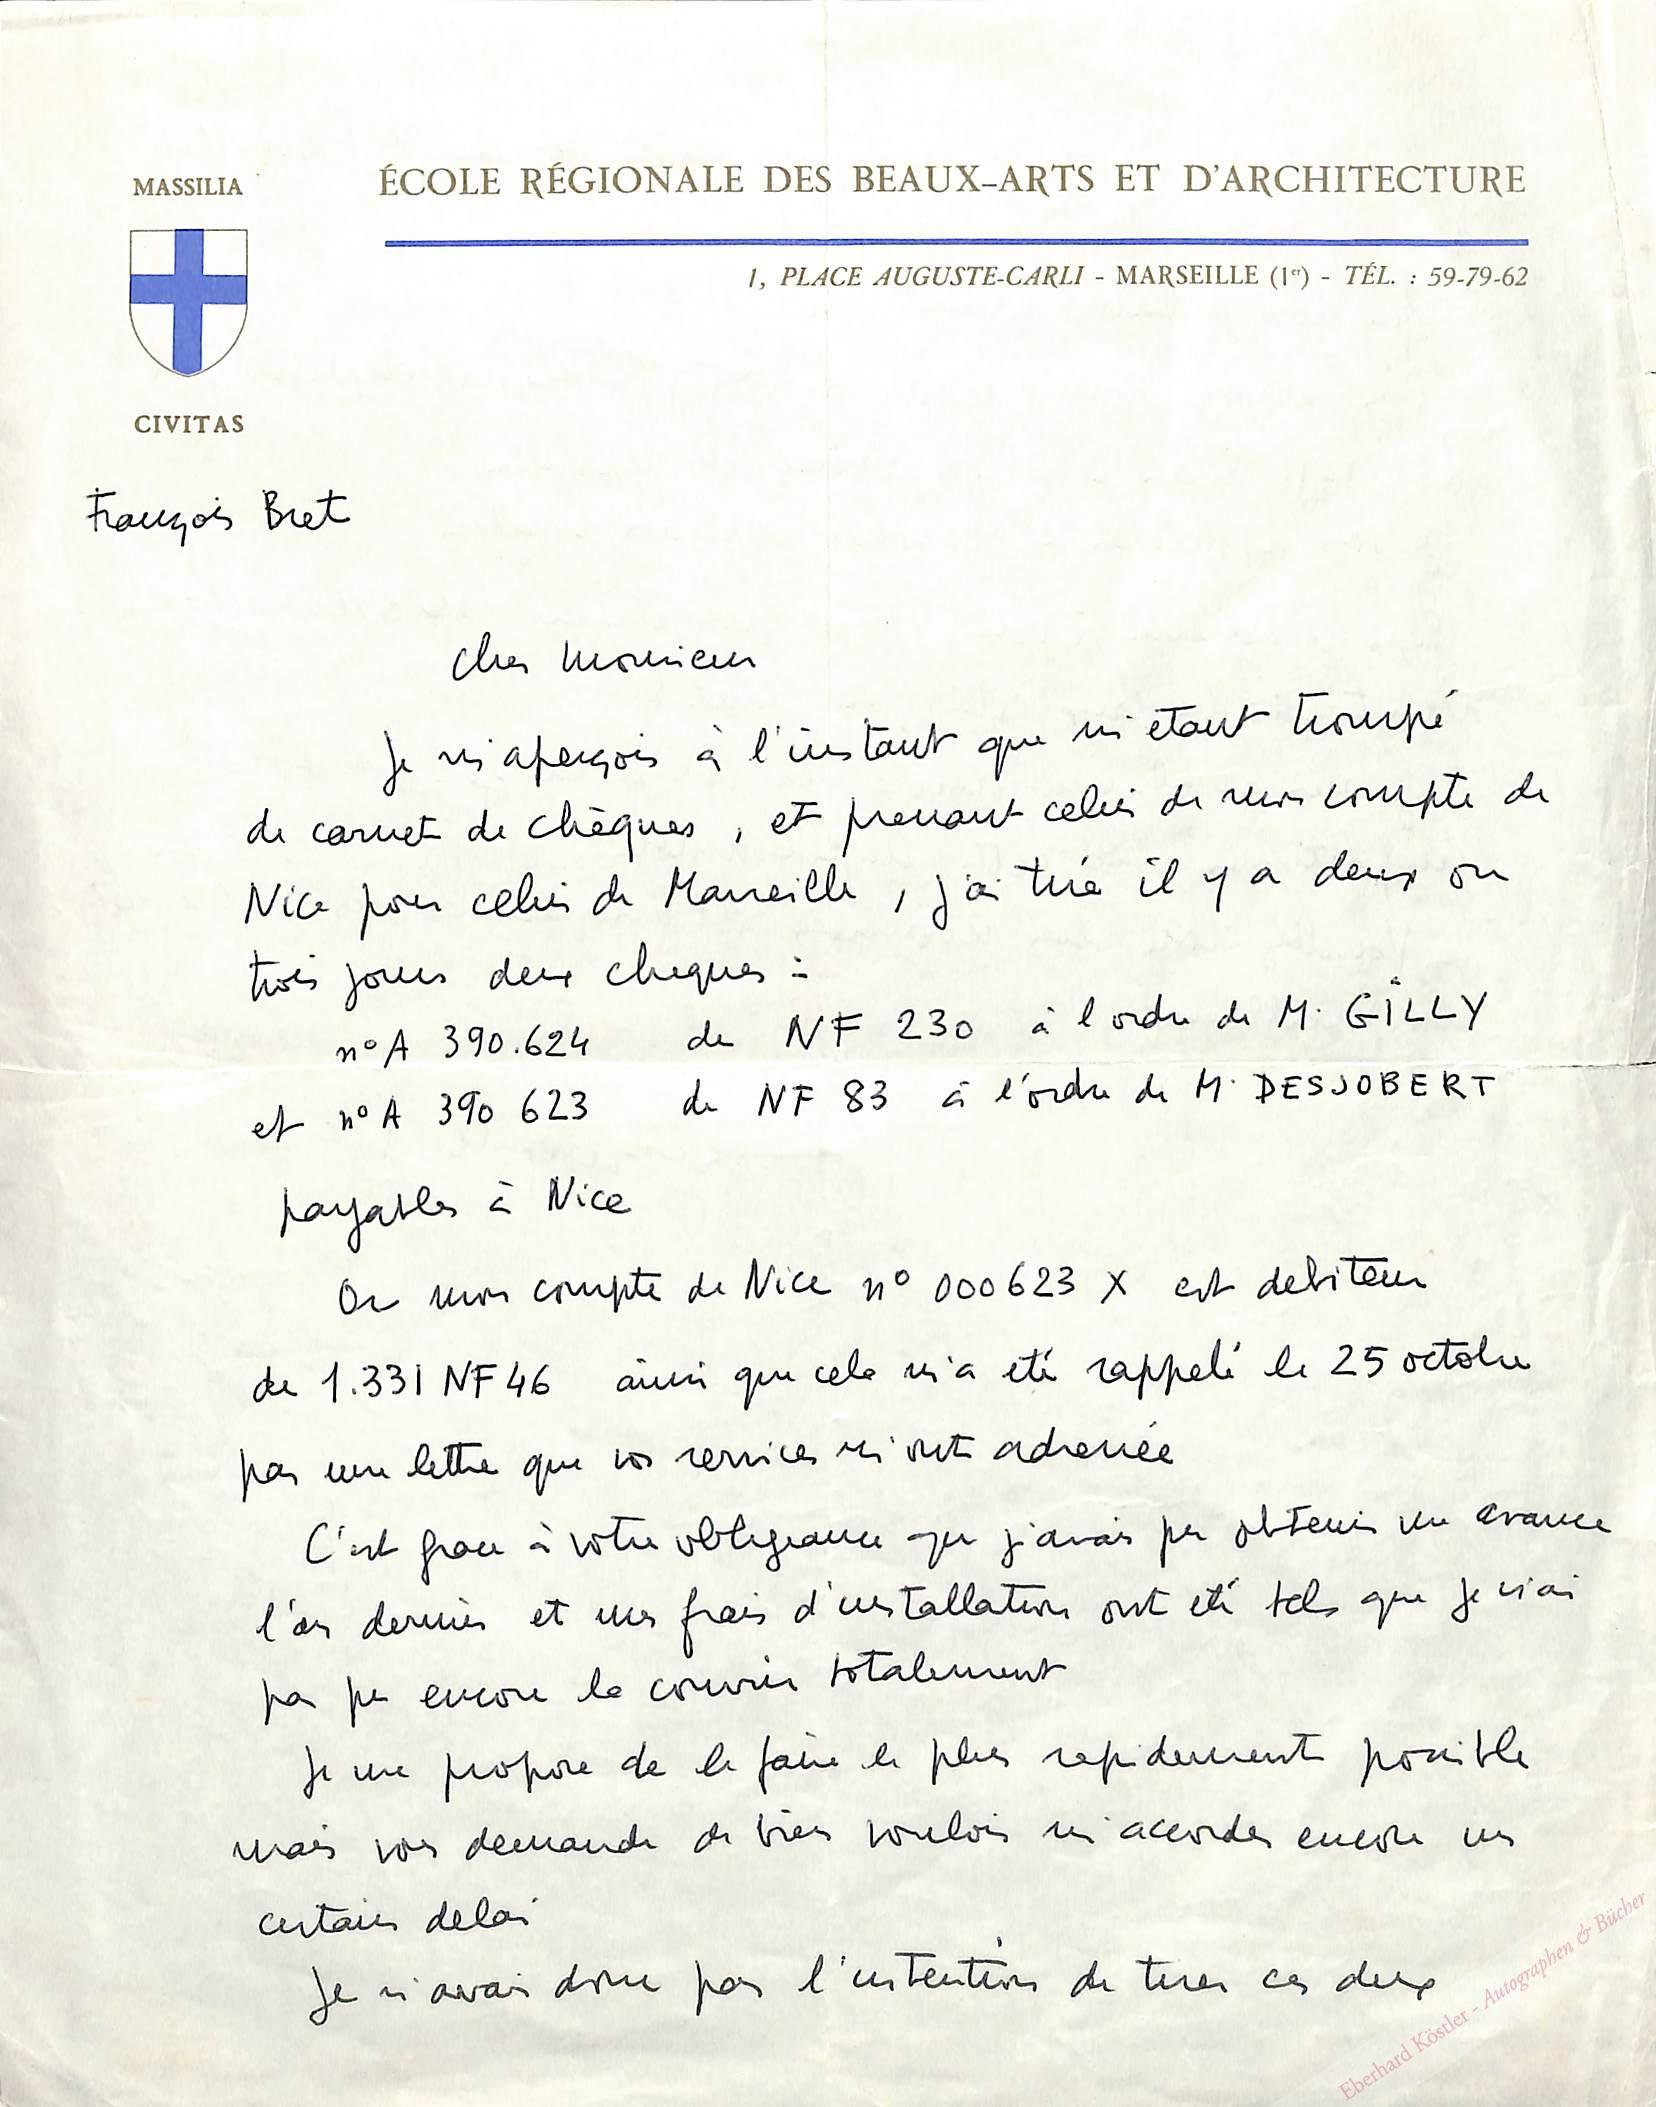 MASSILIA
ÉCOLE RÉGIONALE DES BEAUX-ARTS ET D'ARCHITECTURE
1, PLACE AUGUSTE-CARLI - MARSEILLE (1er) - TÉL. : 59-79-62
CIVITAS
François Bret
Cher Monsieur
Je m'aperçois à l'instant que m'étant trompé
de carnet de chèques, et prenant celui de mon compte de
Nice pour celui de Marseille, j'ai tiré il y a deux ou
trois jours deux cheques :
n° A 390.624 de NF 230 à l'ordre de M. GILLY
et n° A 390 623 de NF 83 à l'ordre de M. DESJOBERT
payables à Nice
Or mon compte de Nice n° 000623 X est debiteur
de 1.331 NF 46 ainsi que cela m'a été rappelé le 25 octobre
par une lettre que vos services m'ont adressée
C'est grace à votre obligeance que j'avais pu obtenir une avance
l'an dernier et mes frais d'installation ont été tels que je n'ai
pas pu encore la couvrir totalement
Je me propose de le faire le plus rapidement possible
mais vous demande de bien vouloir m'accorder encore un
certain delai
Je n'avais donc pas l'intention de tirer ces deux
Eberhard Köstler - Autographen & Bücher